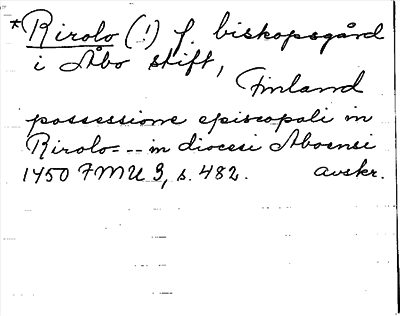 *Rirolo (!) f. biskopsgård
i Åbo stift,
Finland
possessione episcopali in
Rirolo--- in diocesi Aboensi
1450 FMU 3, s. 482. avskr.